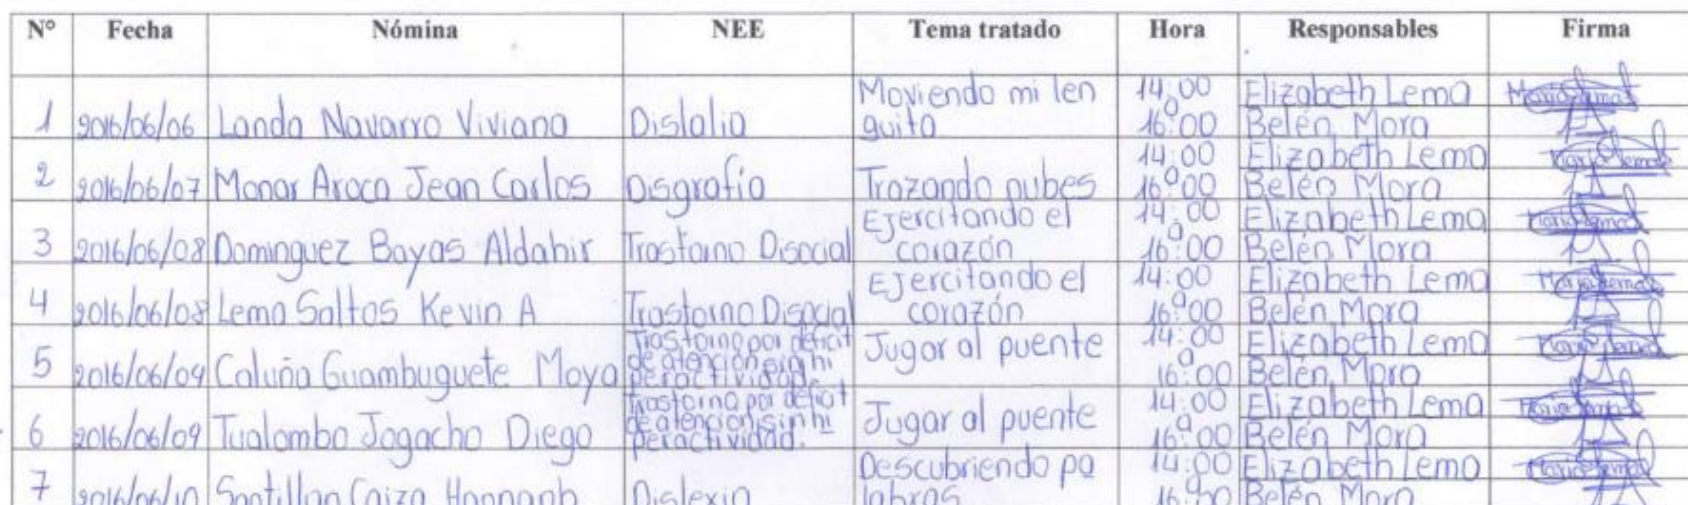 N° Fecha Nómina NEE Tema tratado Hora Responsables Firma
1 2016/06/06 Landa Navarro Viviana Dislalia Moviendo mi len guita 14:00 a 16:00 Elizabeth Lema Belén Mora
2 2016/06/07 Monar Aroca Jean Carlos Disgrafía Trazando nubes 14:00 a 16:00 Elizabeth Lema Belén Mora
3 2016/06/08 Dominguez Bayas Aldahir Trastorno Disocial Ejercitando el corazón 14:00 a 16:00 Elizabeth Lema Belén Mora
4 2016/06/08 Lema Saltos Kevin A Trastorno Disocial Ejercitando el corazón 14:00 a 16:00 Elizabeth Lema Belén Mora
5 2016/06/09 Caluña Guambuguete Moya Trastorno por deficit de atención sin hi peractividad. Jugar al puente 14:00 a 16:00 Elizabeth Lema Belén Mora
6 2016/06/09 Tualombo Jogacho Diego Trastorno por deficit de atención sin hi peractividad. Jugar al puente 14:00 a 16:00 Elizabeth Lema Belén Mora
7 2016/06/10 Santillan Caiza Hannanh Dislexia Descubriendo pa labras 14:00 16:00 Elizabeth Lema Belén Mora